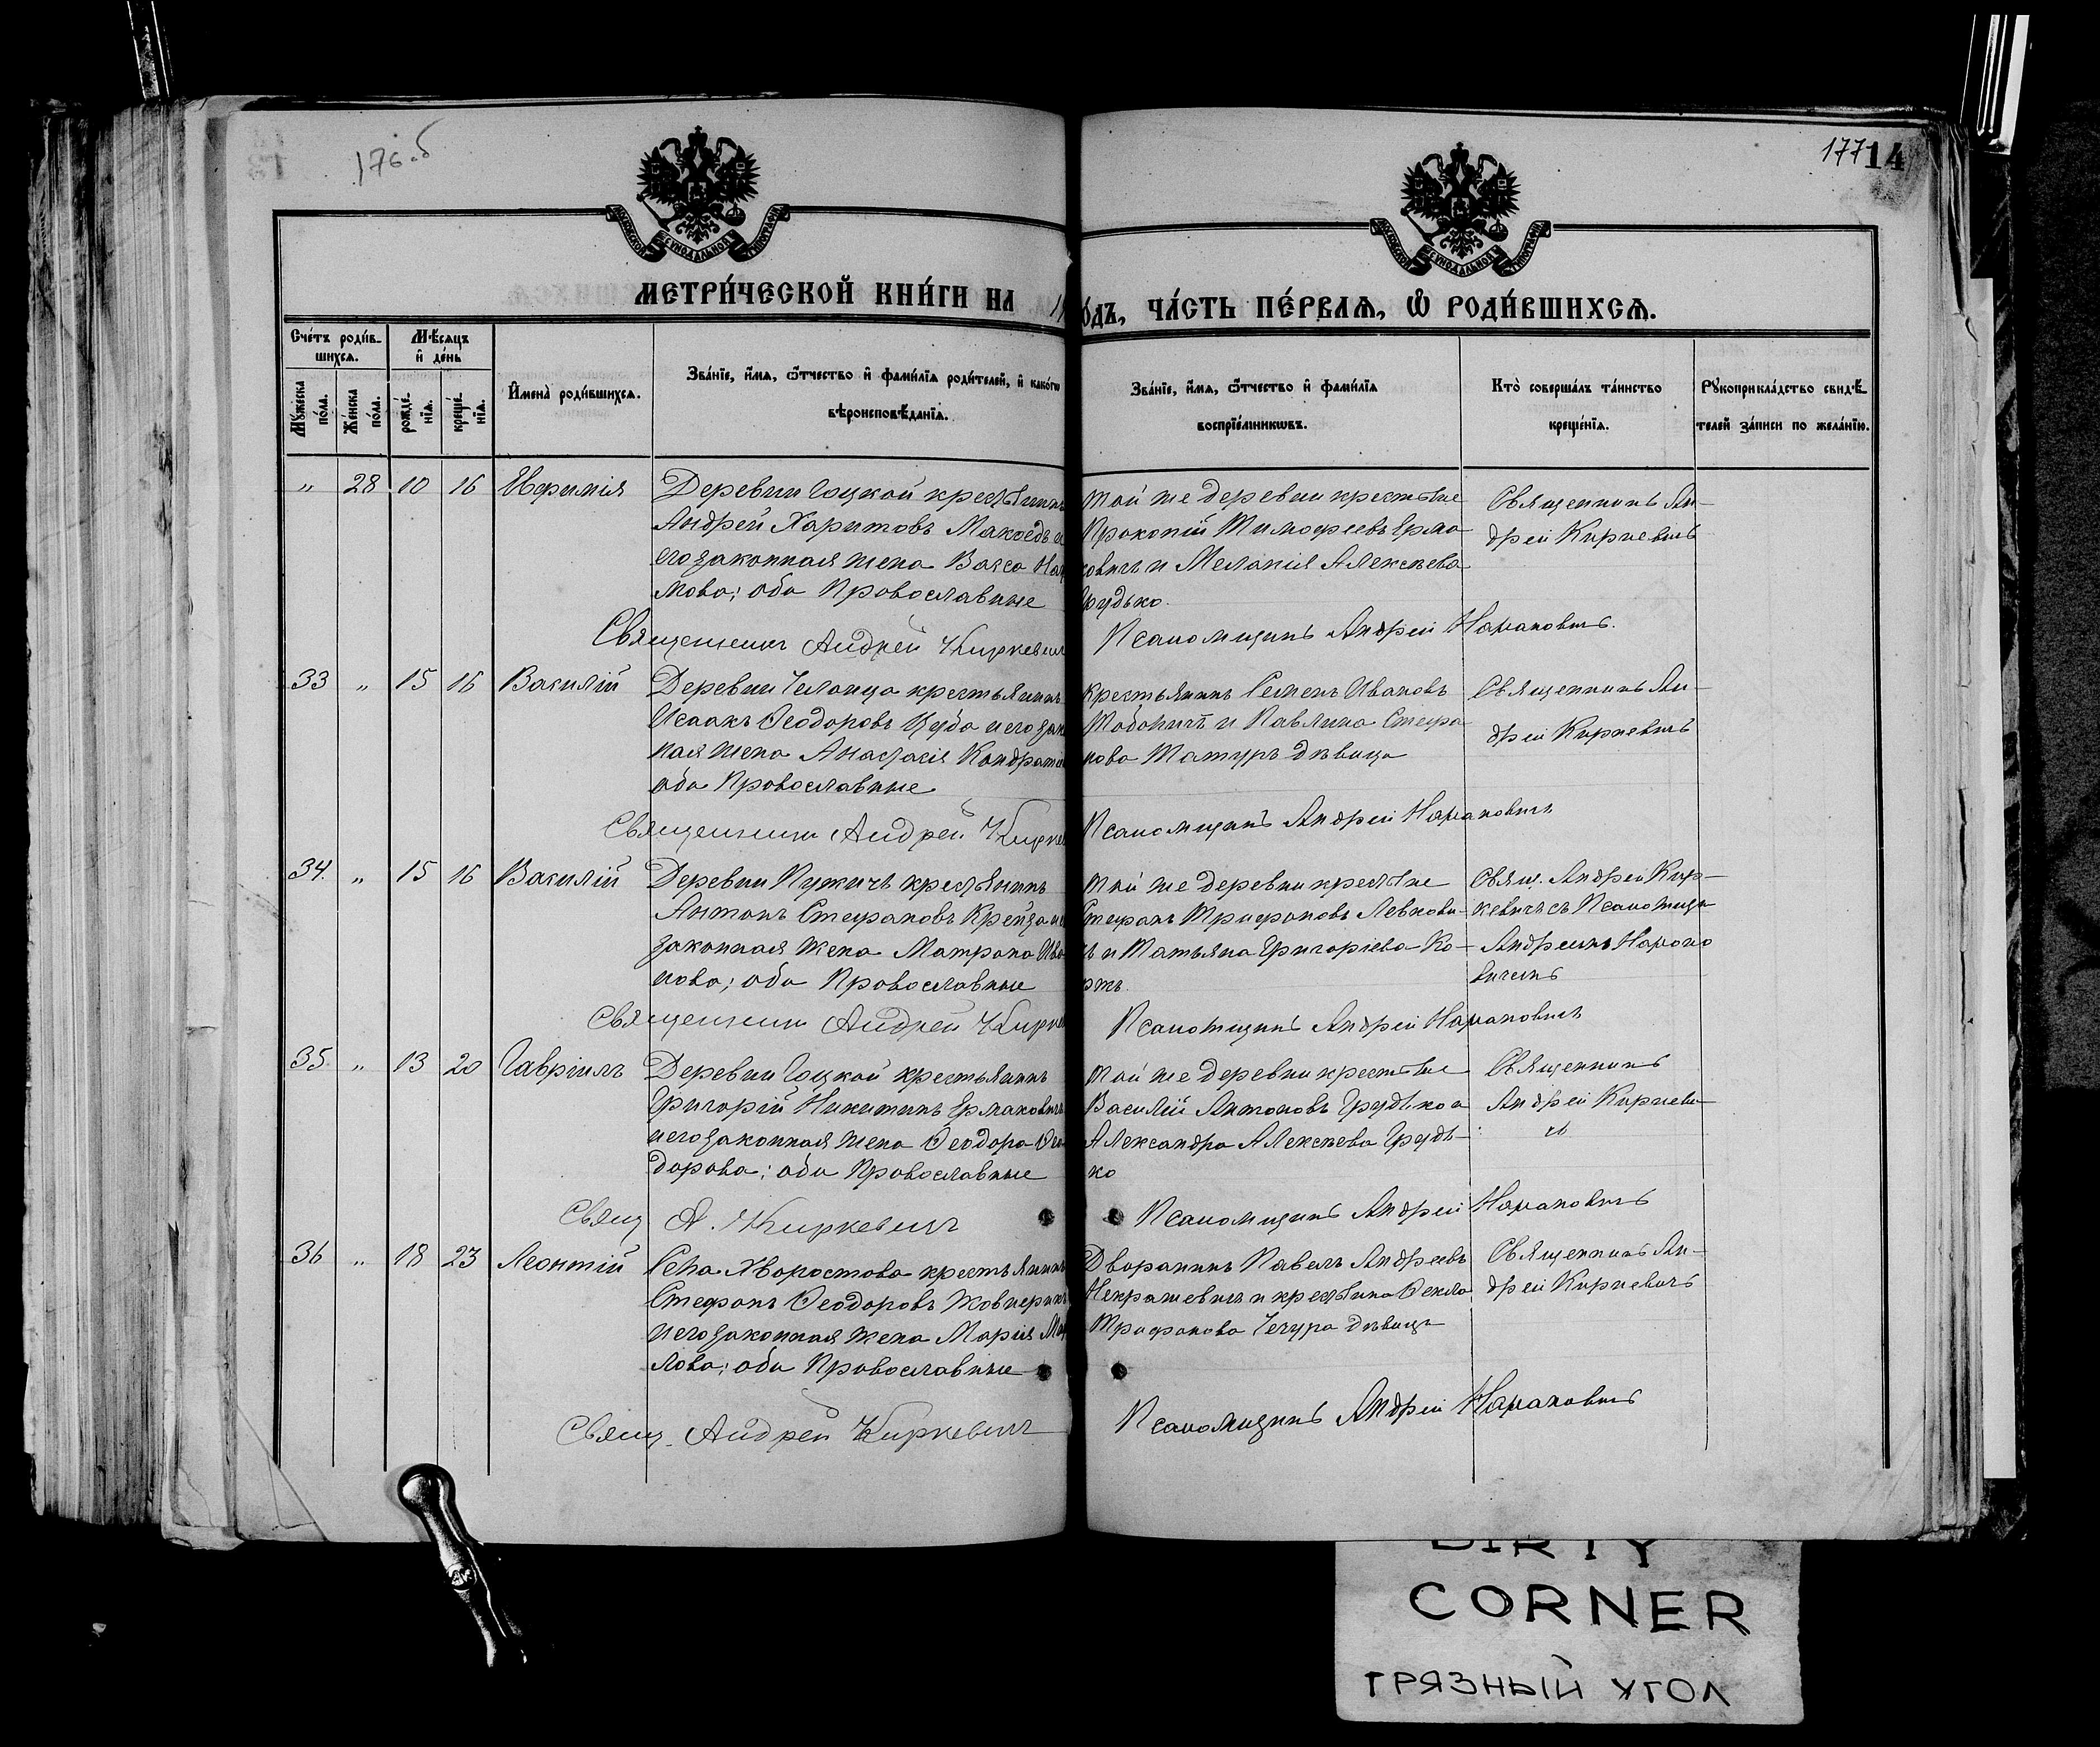 176 об
177 14
МЕТРИ́ЧЕСКОЙ КНИ́ГИ НА 1
О́ДЪ, ЧА́СТЬ ПЕ́РВАѦ, Ѡ҆ РОДИ́ВШИХСѦ.
Сче́тъ роди́в-
шихсѧ.
Мѣ́сѧцъ
и҆ де́нь
Мꙋ́жеска
по́ла.
Же́нска
по́ла.
рожде́-
нїѧ.
креще́-
нїѧ.
И҆мена̀ роди́вшихсѧ.
Зва́нїе, и҆́мѧ, ѻ҆́тчество и҆ фами́лїѧ роди́телей, и҆ како́гѡ
вѣроисповѣ́данїѧ.
Зва́нїе, и҆́мѧ, ѻ҆́тчество и҆ фами́лїѧ
воспрїе́мникѡвъ.
Кто̀ соверша́лъ та́инство
креще́нїѧ.
Рꙋкоприкла́дство свидѣ́-
телей за́писи по жела́нїю.
" 28 10 16 Евфимія
Деревни Гоцкой крестьянинъ
Андрей Харитовъ Макоедъ и
его законная жена Васса На
мова; оба Православные
той же деревни крестьяне
Прокопій Тимофеевъ Ермо
ковичъ и Меланія Алексѣева
Грудько.
Священникъ Ан-
дрей Киркевичъ
Священникъ Андрей Киркевич
Псаломщикъ Андрей
33 " 15 16 Василій
Деревни Челонца крестьянинъ
Исаакъ Ѳеодоровъ Цуба и его зак
ная жена Анастасія Кондратіе
оба Православные
Крестьянинъ Семенъ Ивановъ
и Павлина Стефа
нова Татуръ дѣвица
Священникъ Ан-
дрей Киркевичъ
Священник Андрей Кирке
Псаломщикъ Андрей
34. " 15 16 Василій
Деревни Пужичъ крестьянинъ
Антонъ Стефановъ Крейза и е
законная жена Матрона Ива
нова; оба Православные
той же деревни крестьяне
Стефанъ Трифоновъ Левкови-
чъ и Татьяна Григоріева Ко-
ржъ.
Свящ. Андрей Кир-
кевичъ съ Псаломщи
Андреемъ
вичемъ
Священник Андрей Кирке
Псаломщикъ Андрей
35. " 13 20 Гавріилъ
Деревни Гоцкой крестьянинъ
Григорій Никитинъ Ермаковичъ
и его законная жена Ѳеодора Ѳео
дорова; оба Православные
той же деревни крестьяне
Василій Антоновъ Грудько и
Александра Алексѣева Грудь-
ко
Священникъ
Андрей Киркеви-
чъ
Свящ А. Киркевич
Псаломщикъ Андрей
36 " 18 23 Леонтій
Села Хворостова крестьянинъ
Стефанъ Ѳеодоровъ Жовнерикъ
и его законная жена Марія
лова; оба Православные
Дворянинъ Павелъ Андреевъ
Некрашевичъ и крестьянка Ѳекла
Трифонова Чечура дѣвица
Священникъ Ан-
дрей Киркевичъ
Свящ. Андрей Киркевич
Псаломщикъ Андрей
DIRTY
CORNER
ГРЯЗНЫЙ УГОЛ